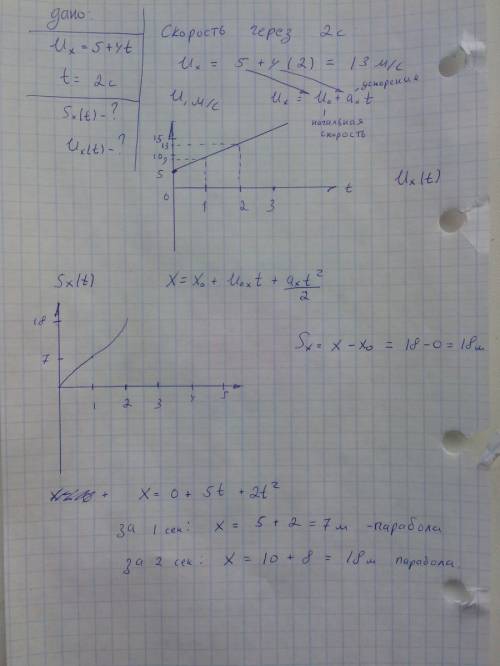 дано:
Ux = 5+4t
t = 2с
Sx(t) - ?
Ux(t) - ?
Скорость через 2с
Ux = 5 + 4(2) = 13 м/с
ускорение
Ux = U₀ + aₓt
начальная
скорость
U, м/с
15
13
10
9
5
0
1 2 3
t
Ux(t)
Sx(t)
X = X₀ + U₀ₓt + aₓt²/2
18
7
1 2 3 4 5
Sx = X - X₀ = 18 - 0 = 18м
X = 0 + 5t + 2t²
за 1 сек: X = 5 + 2 = 7м - парабола
за 2 сек: X = 10 + 8 = 18м парабола.